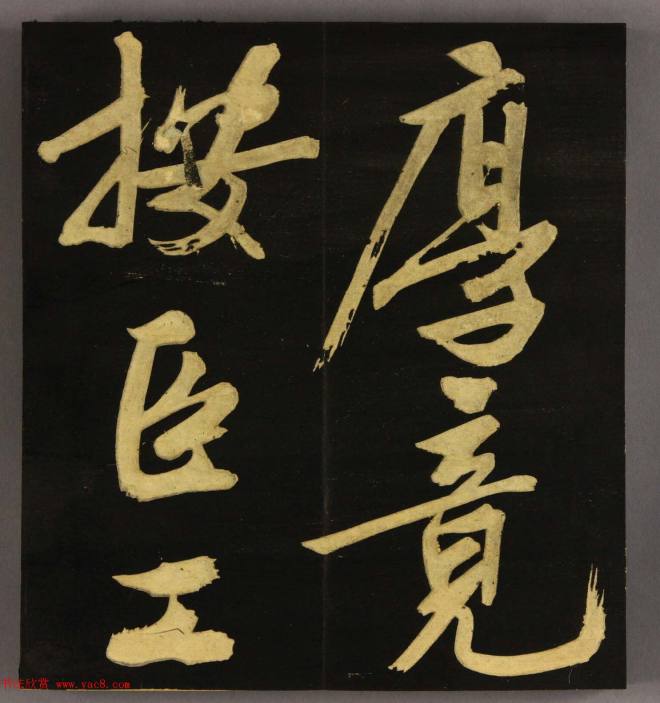 厚竟
接臣工
书法欣赏 www.yac8.com